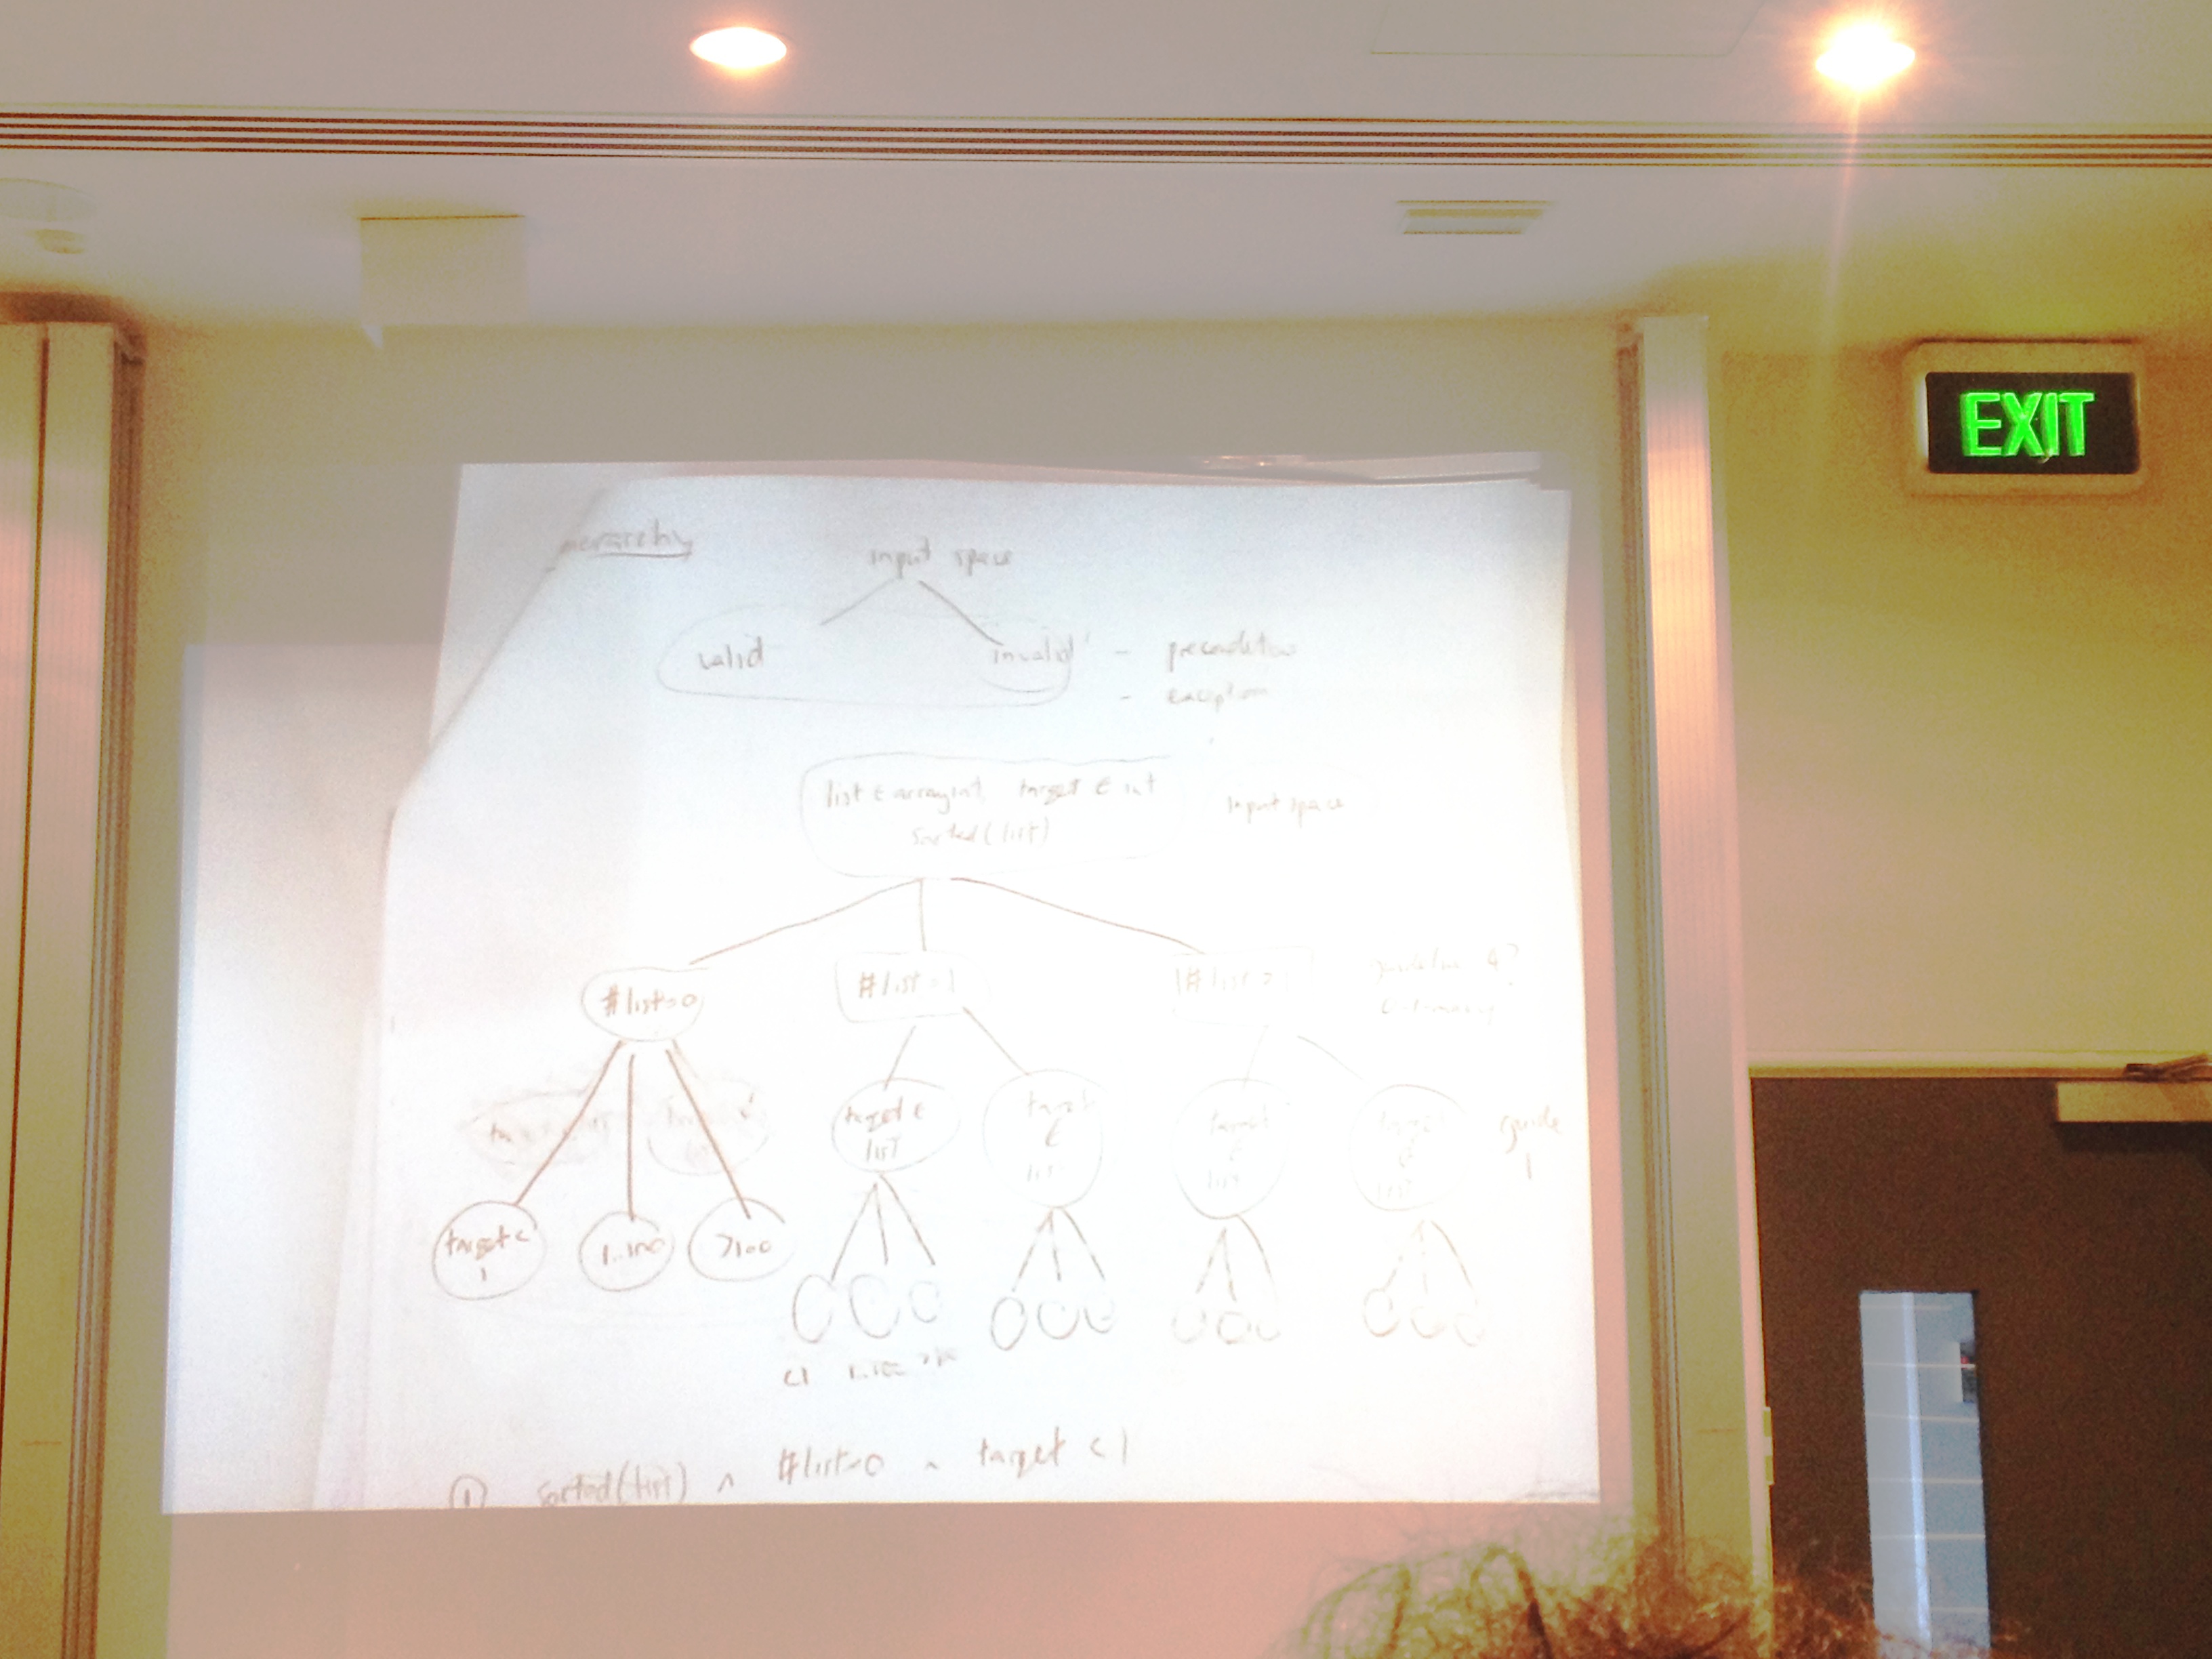 EXIT
input space
valid invalid - precondition
- exception
list ∈ arrayint, target ∈ int
sorted(list)
input space
#list=0 #list=1 #list >
target ∈
list
target
∈
list
target
∈
list
target
∈
list
guide
1
target <
1
1..100
>100
<1 1..100 >100
① sorted(list) ∧ #list=0 ∧ target <1